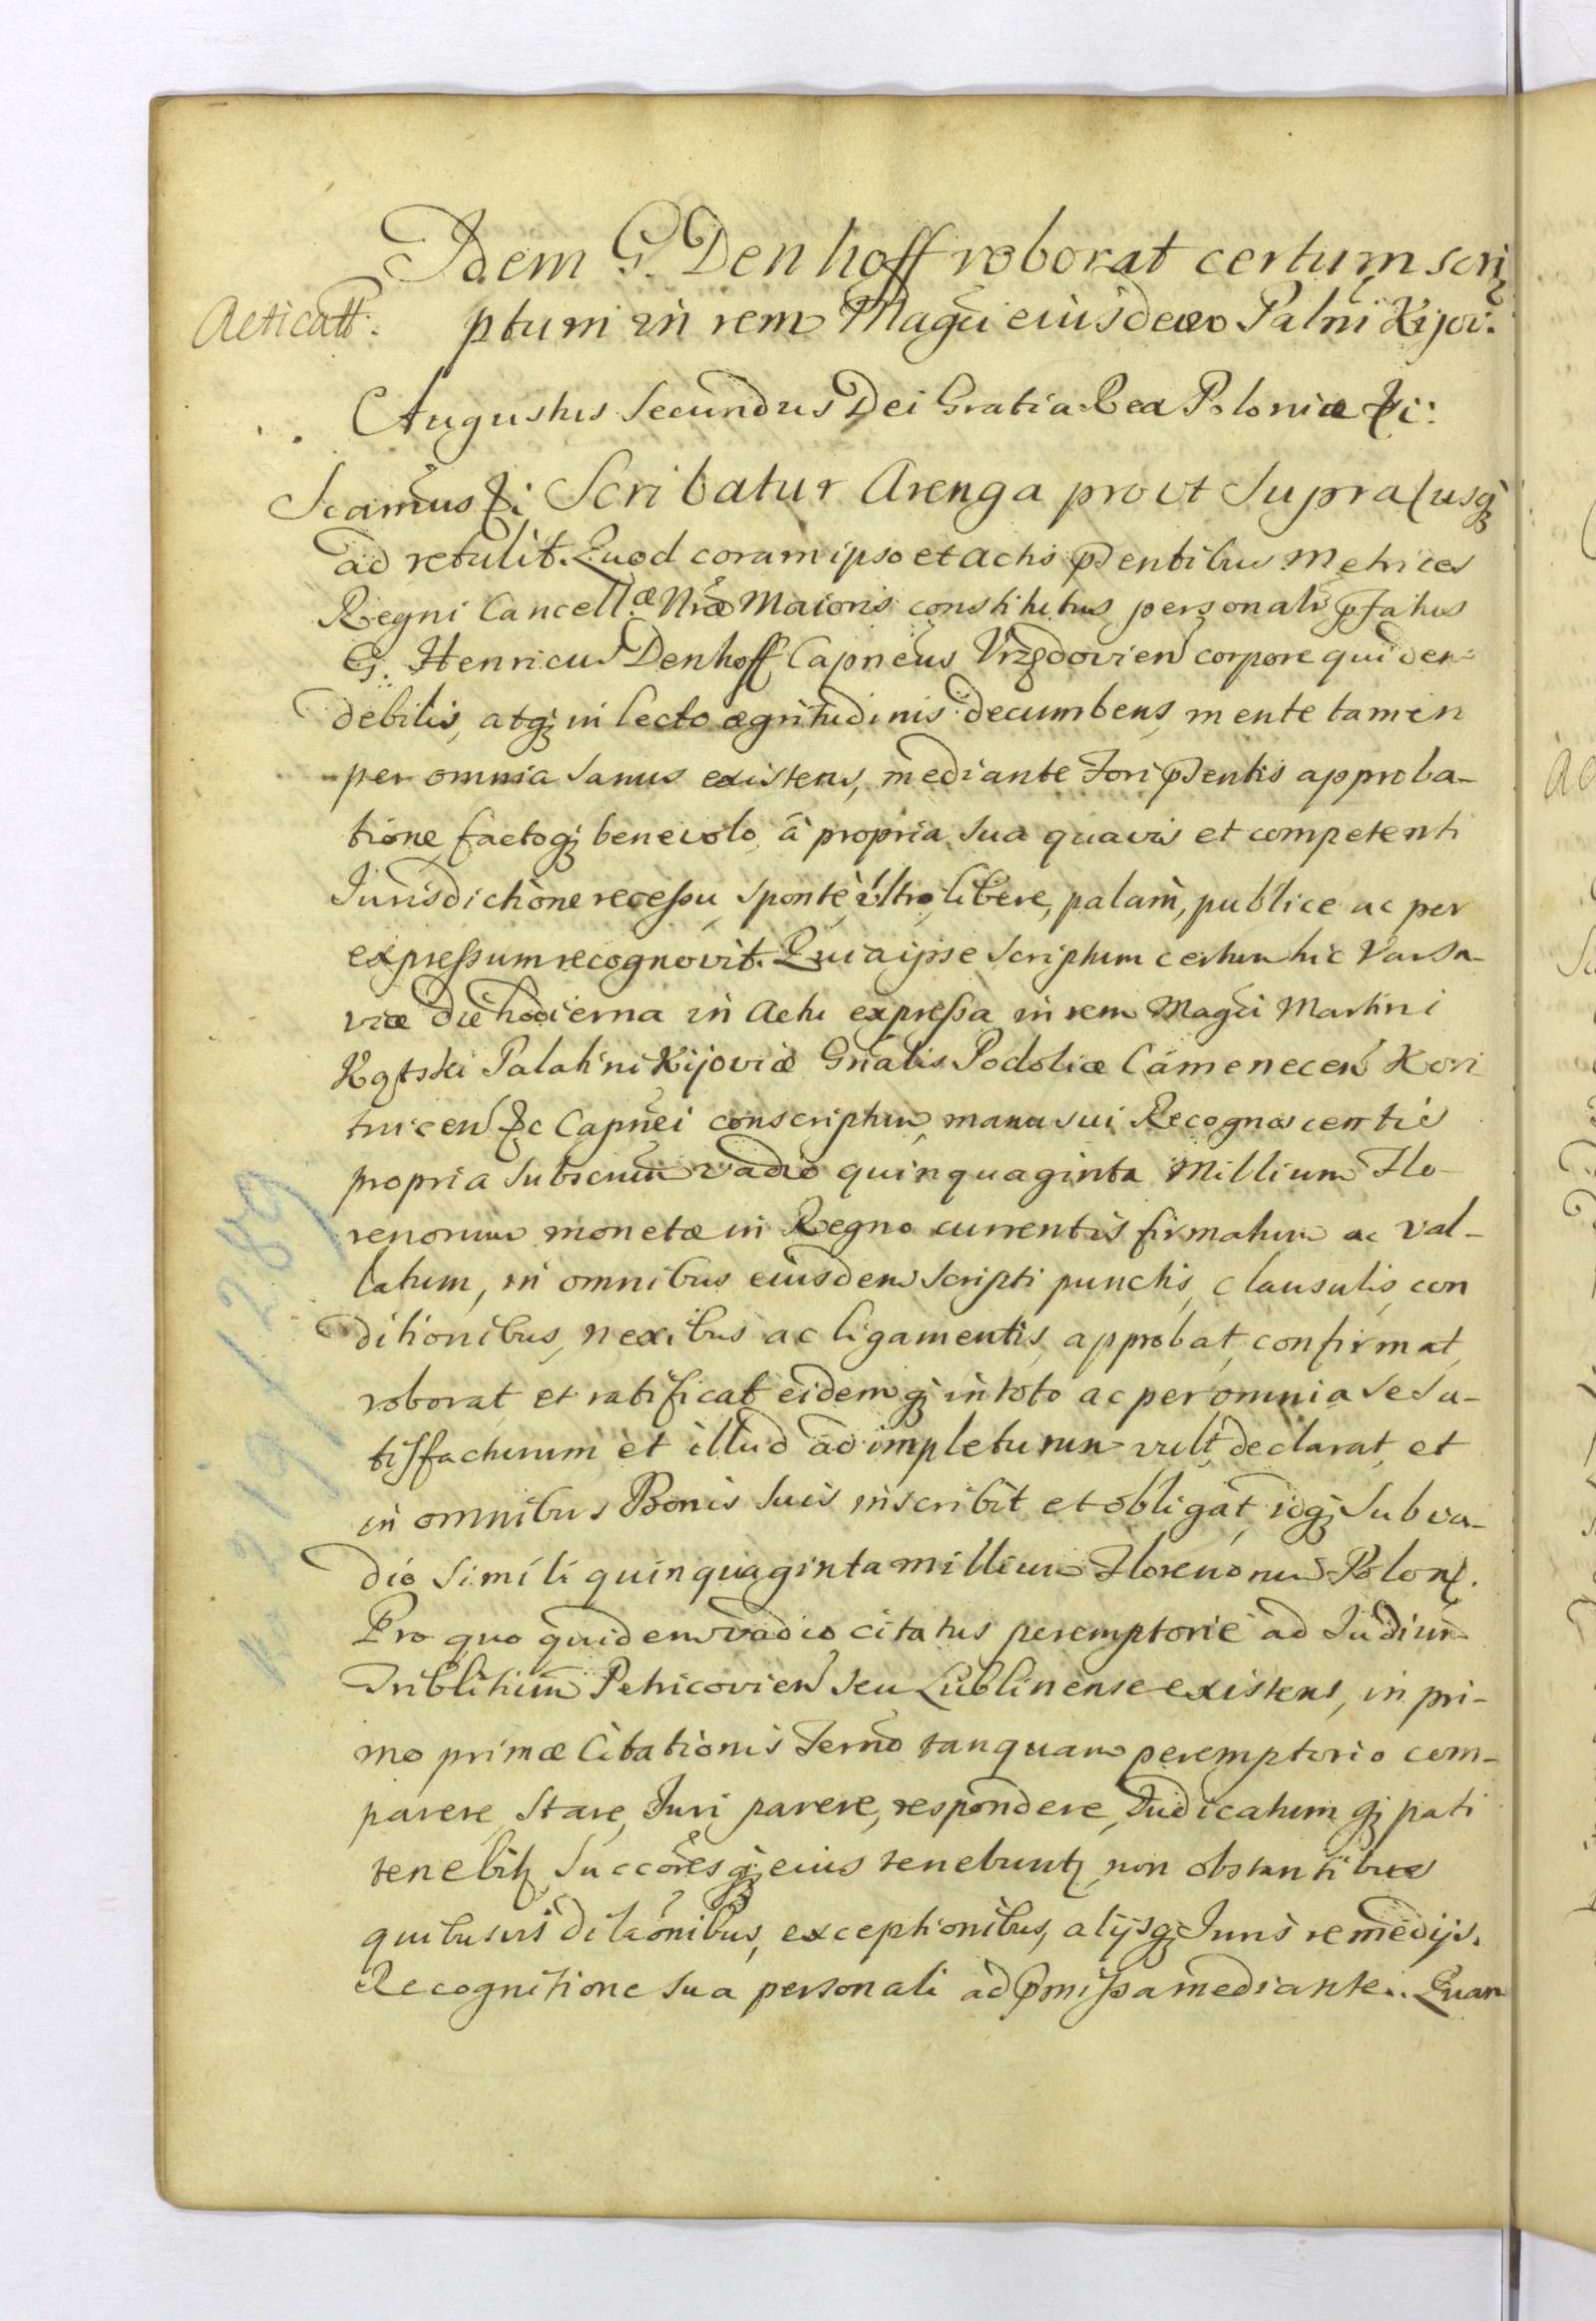 Idem G. Denhoff roborat certum scri
Acticatt: ptum in rem Magci eiusdem Palni Kijov:
Augustus Secundus Dei Gratia Rex Poloniæ &c:
Scamus &c Scribatur Arenga prout Supra usq₃
ad retulit. Quod coram ipso et actis pntibus Metrices
Regni Cancell.æ Nræ Maioris constitutus personalr pfatus
G. Henricus Denhoff Capneus Vrzędovien corpore quidem
debilis, atq₃ in lecto ægritudinis decumbens, mente tamen
per omnia sanus existens, mediante Fori pntis approba-
tione, factoq₃ benevolo, à propria sua quavis et competenti
Jurisdictione recessu, sponte, ultro, libere, palam, publice ac per
expressum recognovit. Quia ipse scriptum certum hic Varsa-
viæ die hodierna in Actu expressa in rem Magci Martini
Kątski Palatini Kijoviæ Gnalis Podoliæ Camenecen Kori
tnicen &c Capnei conscriptum, manu sui Recognoscentis
propria subscrum vadio quinquaginta Millium Flo-
renorum monetæ in Regno currentis firmatum ac val-
latum, in omnibus eiusdem scripti punctis, clausulis, con
ditionibus, nexibus ac ligamentis, approbat, confirmat,
roborat, et ratificat eidemq₃ in toto ac per omnia se sa-
tisfacturum et illud adimpleturum vult, declarat, et
in omnibus Bonis suis inscribit et obligat, idq₃ sub va-
dio simili quinquaginta millium Florenorum Polon.
Pro quo quidem vadio citatus peremptorie ad Judium
Triblitium Petricovien seu Lublinense existens, in pri-
mo primæ Citationis Termo tanquam peremptorio com-
parere, stare, Juri parere, respondere, Judicatumq₃ pati
tenebit, Succoresq₃ eius tenebunt, non obstantibus
quibusvis dilaonibus, exceptionibus, alijsq₃ Juris remedijs.
Recognitione sua personali ad pmissa mediante. Quam